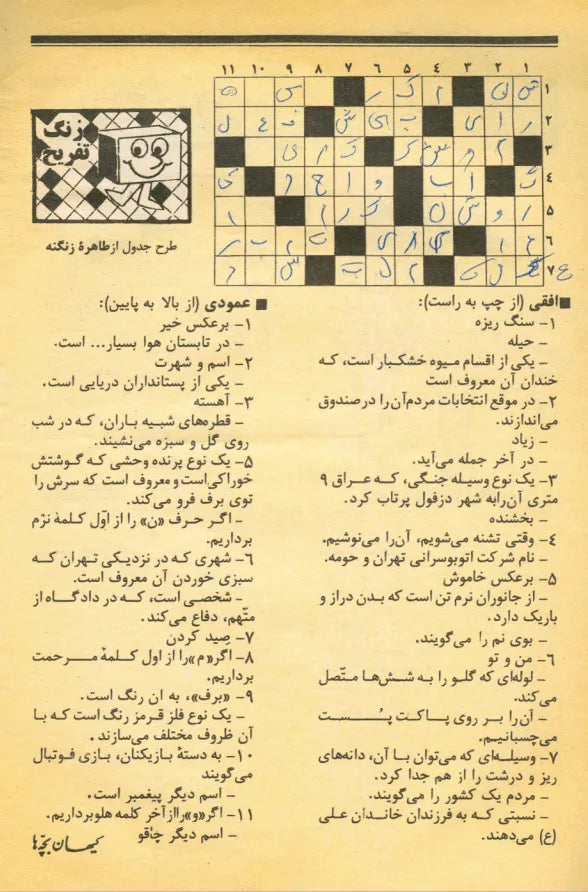 ۱۱ ۱۰ ۹ ۸ ۷ ۶ ۵ ٤ ۳ ۲ ۱
۱
۲
۳
٤
۵
٦
۷
زنگ
تفریح
طرح جدول از طاهرهٔ زنگنه
افقی (از چپ به راست):
۱- سنگ ریزه
- حیله
- یکی از اقسام میوه خشکبار است، که
خندان آن معروف است
۲- در موقع انتخابات مردم‌آن‌را درصندوق
می‌اندازند.
- زیاد
- در آخر جمله می‌آید.
۳- یک نوع وسیله جنگی، که عراق ۹
متری آن‌رابه شهر دزفول پرتاب کرد.
- بخشنده
٤- وقتی تشنه می‌شویم، آن‌را می‌نوشیم.
- نام شرکت اتوبوسرانی تهران و حومه.
۵- برعکس خاموش
- از جانوران نرم تن است که بدن دراز و
باریک دارد.
- بوی نم را می‌گویند.
٦- من و تو
- لوله‌ای که گلو را به شش‌ها متّصل
می‌کند.
- آن‌را بـر روی پـاکت پُـست
می‌چسبانیـم.
۷- وسیلـه‌ای که می‌توان بـا آن، دانه‌های
ریز و درشت را از هم جدا کرد.
- مردم یک کشور را می‌گویند.
- نسبتی که به فرزندان خانـدان علـی
(ع) می‌دهند.
عمودی (از بالا به پایین):
۱- برعکس خیر
- در تابستان هوا بسیار... است.
۲- اسم و شهرت
- یکی از پستانداران دریایی است.
۳- آهسته
- قطره‌های شبیـه بـاران، که در شب
روی گل و سبزه می‌نشیند.
۵- یک نوع پرنده وحشی کـه گـوشتش
خوراکی‌است و معروف است که سرش را
توی برف فرو می‌کند.
- اگـر حرف «ن» را از اوّل کلمهٔ نرْم
برداریم.
٦- شهری که در نزدیـکی تهـران کـه
سبزی خوردن آن معروف است.
- شخصی است، که در دادگـاه از
متّهم، دفاع می‌کند.
۷- صِید کردن
۸- اگر«م»را از اول کلمـهٔ مـرحمت
برداریم.
۹- «برف»، به ان رنگ است.
- یک نوع فلز قرمز رنگ است که بـا
آن ظروف مختلف می‌سازند .
۱۰- به دستهٔ بازیکنان، بازی فـوتبال
می‌گویند
- اسم دیگر پیغمبر است.
۱۱- اگر«و»رااز آخر کلمه هلوبرداریم.
- اسم دیگر چاقو
کیهان بچّه‌ها